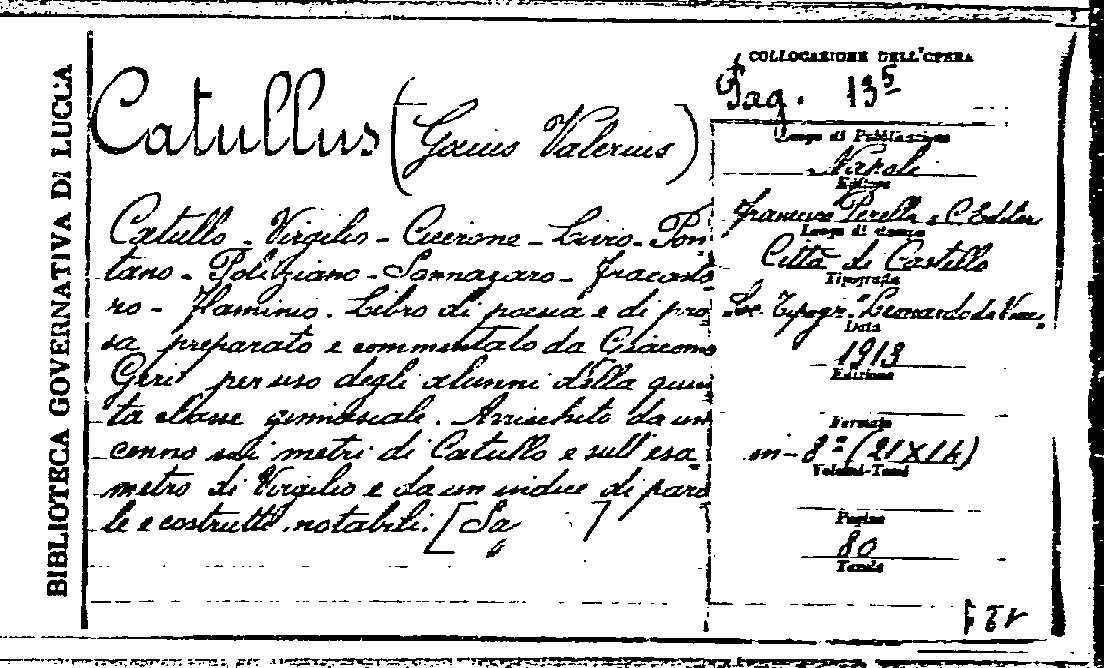 BIBLIOTECA GOVERNATIVA DI LUCCA
Catullus (Gaius Valerius)
Catullo - Virgilio - Cicerone - Livio - Pon-
tano - Poliziano - Sannazaro - Fracasto-
ro - Flaminio. Libro di poesia e di pro-
sa preparato e commentato da Giacomo
Geri per uso degli alunni della quin-
ta classe ginnasiale. Arricchito da un
cenno sui metri di Catullo e sull'esa-
metro di Virgilio e da un indice di paro-
le e costrutti notabili. [Sa ]
COLLOCAZIONE DELL'OPERA
Pag. 13⁵
Luogo di Pubblicazione
Napoli
Editore
Francesco Perella e C. Editori
Luogo di stampa
Città di Castello
Tipografia
Soc. Tipogr. "Leonardo da Vinci"
Data
1913
Edizione
Formato
in-8º (21X14)
Volumi-Tomi
Pagine
80
Tavole